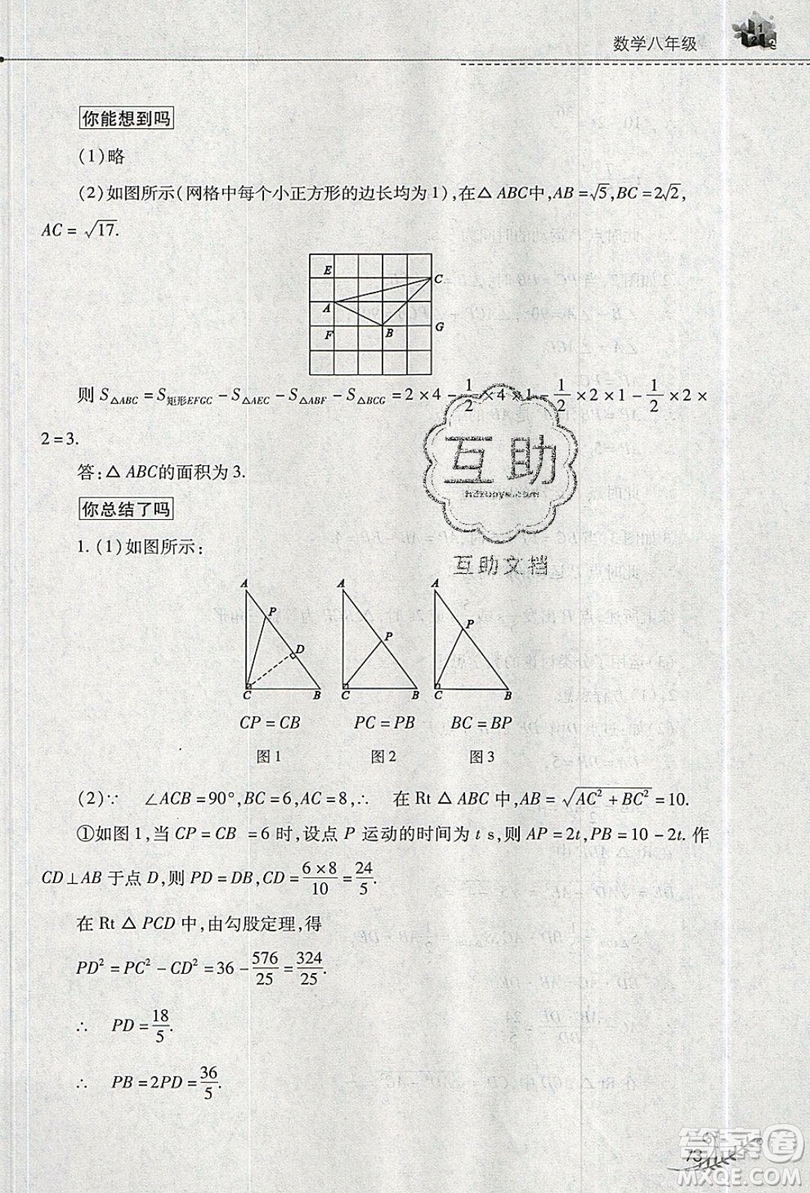 数学八年级
你能想到吗
(1)略
(2)如图所示(网格中每个小正方形的边长均为1),在△ABC中,AB=√5,BC=2√2,
AC=√17.
E
C
A
F
B
G
则 S△ABC=S矩形EFGC-S△AEC-S△ABF-S△BCG=2×4-1/2×4×1-1/2×2×1-1/2×2×
2=3.
答:△ABC的面积为3.
你总结了吗
1.(1)如图所示:
A
P
D
C
B
A
P
C
B
A
P
C
B
CP=CB
PC=PB
BC=BP
图1
图2
图3
(2)∵ ∠ACB=90°,BC=6,AC=8,∴ 在Rt△ABC中,AB=√(AC²+BC²)=10.
①如图1,当CP=CB=6时,设点P运动的时间为t s,则AP=2t,PB=10-2t.作
CD⊥AB于点D,则PD=DB,CD=(6×8)/10=24/5.
在Rt△PCD中,由勾股定理,得
PD²=PC²-CD²=36-576/25=324/25.
∴ PD=18/5.
∴ PB=2PD=36/5.
73
互助
互助文档
答案圈
MXQE.COM